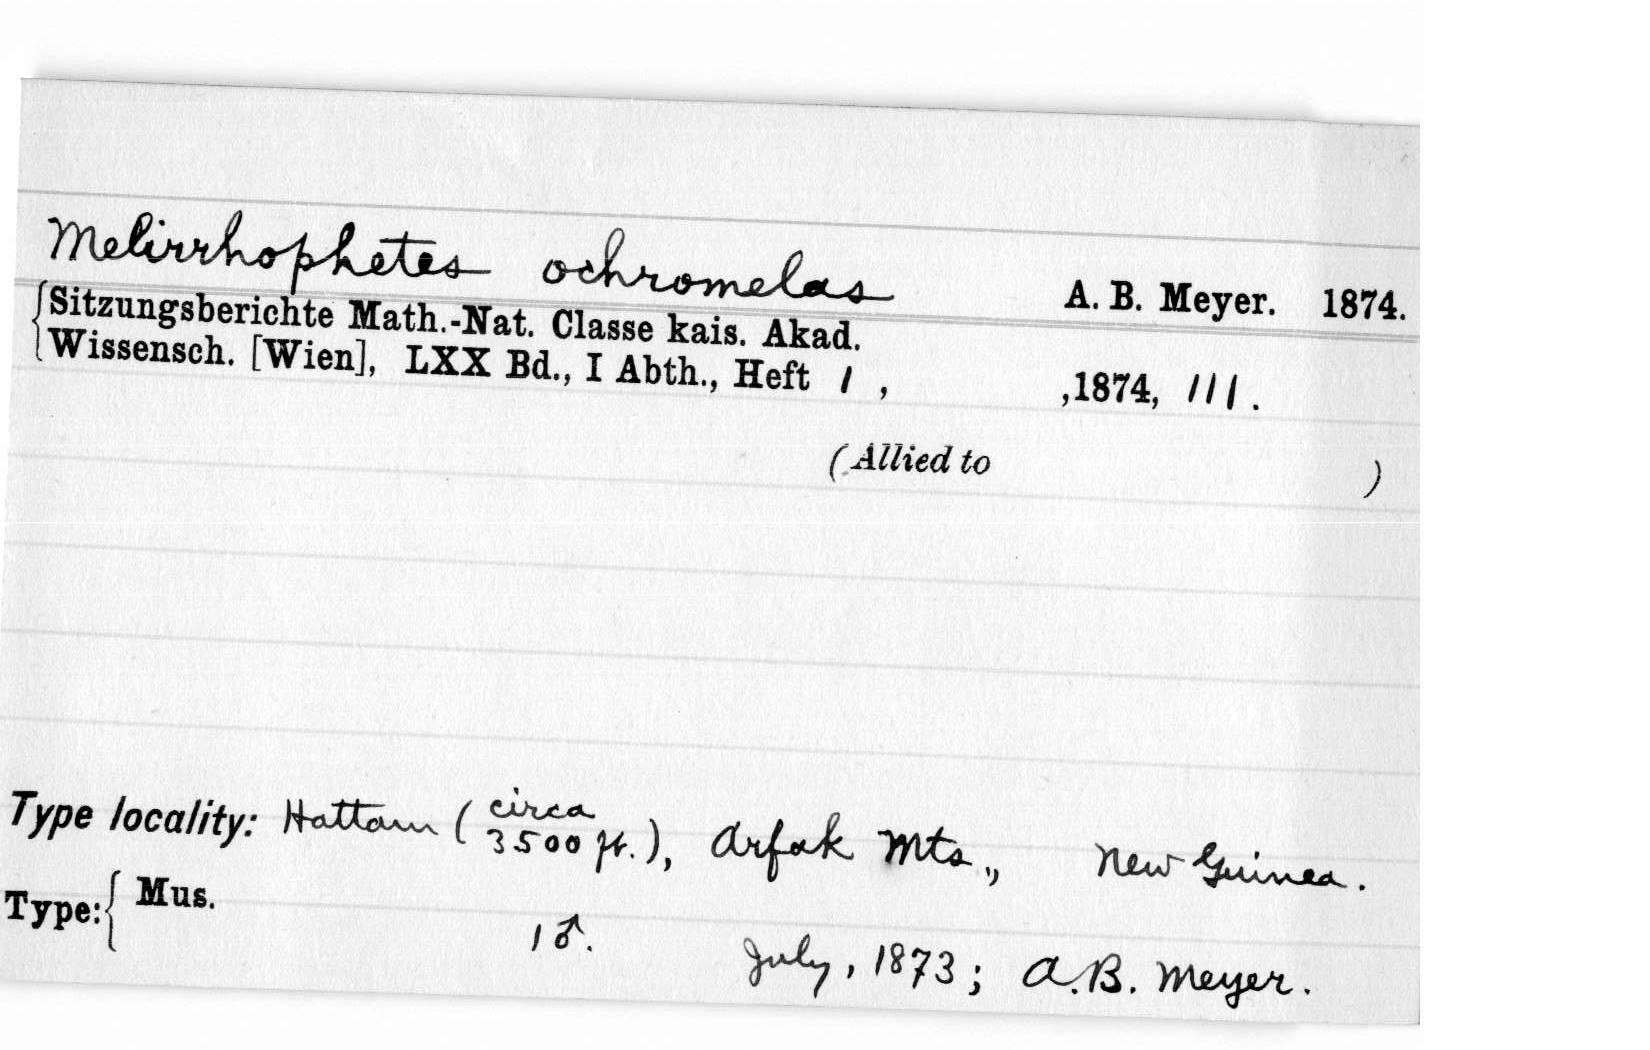 Melirrhophetes ochromelas A. B. Meyer. 1874.
Sitzungsberichte Math.-Nat. Classe kais. Akad.
Wissensch. [Wien], LXX Bd., I Abth., Heft 1 , ,1874, 111.
(Allied to )
Type locality: Hattam (circa 3500 ft.), Arfak Mts., New Guinea.
Type: { Mus.
1 ♂. July, 1873; A.B. Meyer.